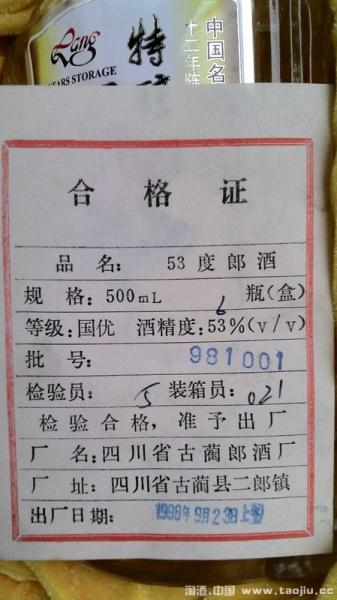 Lang
特
中国名
十二年陈
EARS STORAGE
合格证
品 名: 53度郎酒
规 格: 500mL 6 瓶(盒)
等级: 国优 酒精度: 53%(v/v)
批 号: 981001
检验员: 5 装箱员: 021
检验合格,准予出厂
厂 名: 四川省古蔺郎酒厂
厂 址: 四川省古蔺县二郎镇
出厂日期: 1998年9月23日上
淘酒.中国 www.taojiu.cc